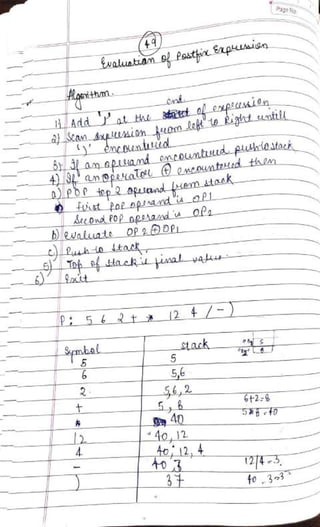 Page No.
49
Evaluation of Postfix Expression
Algorithm.
1) Add ')' at the end of expression
2) Scan expression from left to Right untill
')' encountered
3) If an operand encountered push to stack
4) If an operator ⊕ encountered then
a) POP top 2 operand from stack
First POP operand is OP1
Second POP operand is OP2
b) evaluate OP2 ⊕ OP1
c) Push to stack
5) Top of stack is final value.
6) Exit
P: 5 6 2 + * 12 4 / - )
Symbol stack
5 5
6 5,6
2 5,6,2
+ 5,8 6+2=8
* 40 5*8=40
12 40,12
4 40,12,4
- 40,3 12/4=3
) 37